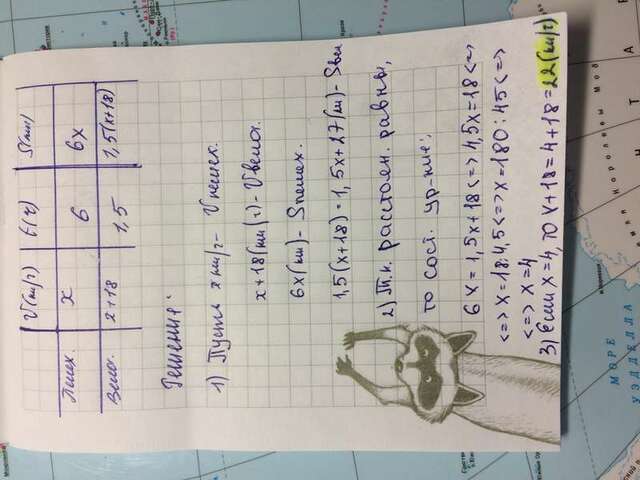 V(км/ч) t(ч) S(км)
Пешех. x 6 6x
Вело. x+18 1,5 1,5(x+18)
Решение:
1) Пусть x км/ч - Vпешех.
x+18(км/ч) - Vвело.
6x(км) - Sпешех.
1,5(x+18) = 1,5x+27(км) - Sвел
2) Т.к. расстоян. равны,
то сост. ур-ние:
6x = 1,5x+18 <=> 4,5x=18 <=>
<=> x=18:4,5 <=> x=180:45 <=>
<=> x=4
3) Если x=4, то x+18=4+18=22(км/ч)
МОРЕ
УЭДДЕЛЛА